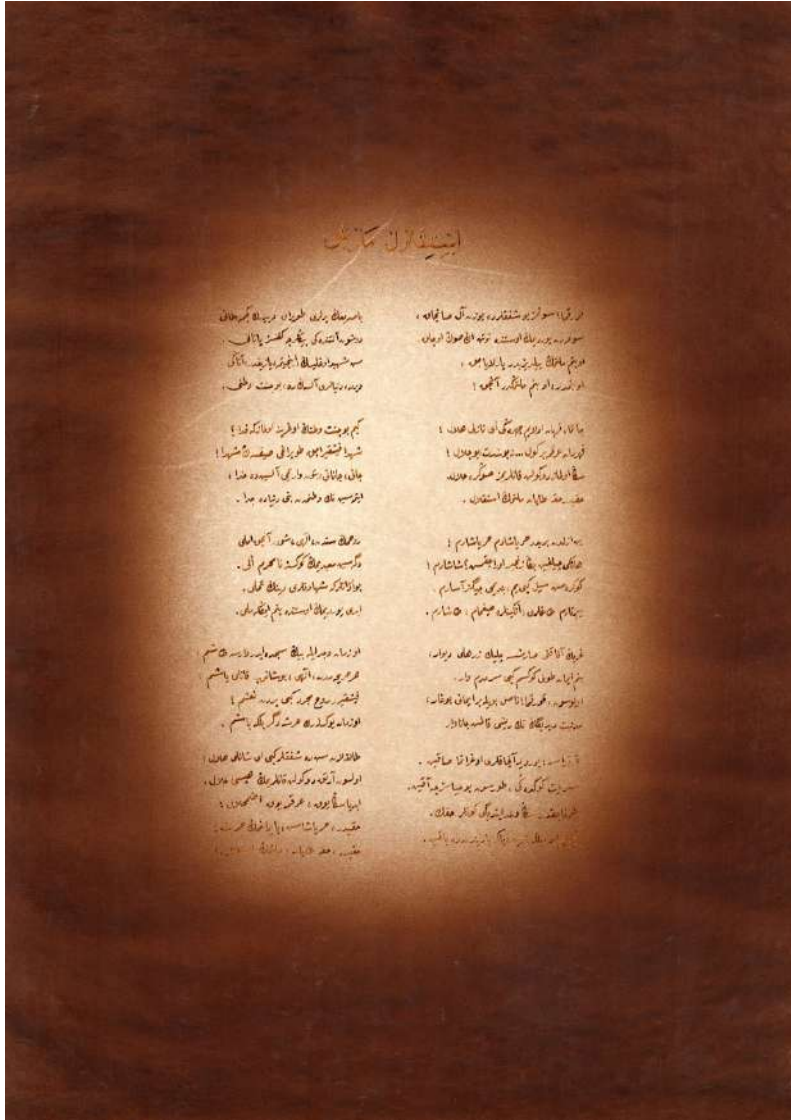 ايستيقلال مارشى
قورقما، سونمز بو شفقلرده يوزن آل صانجاق ؛
سونمه‌دن يورديمك اوستنده توتن اڭ صوڭ اوجاق.
او بنم ملتمڭ ييلديزيدر پارلاياجق ؛
او بنمدر، او بنم ملتمڭدر آنجق !
چاتما، قربان اولايم چهره‌ڭى اى نازلى هلال !
قهرمان عرقمه بر كول... نه بو شدت بو جلال !
سڭا اولماز دوكولن قانلريمز صوڭره حلال،
حقيدر، حقه طاپان ملتمڭ استقلال.
بن ازلدن بريدر حر ياشادم حر ياشارم !
هانكى چيلغين بڭا زنجير اوراجقمش؟ شاشارم !
كوكره‌مش سيل كبى‌يم، بنديمى چيكنر آشارم.
ييرتارم طاغلرى، انكينلره صيغمام، طاشارم.
غربڭ آفاقنى صارمشسه چليك زرهلى ديوار،
بنم ايمان طولى كوكسم كبى سرحدم وار.
اولوسون، قورقما! ناصل بويله بر ايمانى بوغار،
مدنيت ديديكڭ تك ديشى قالمش جاناوار
آرقداش، يورديمه آلچاقلرى اوغراتما صاقين.
سپر ايت كوكده‌ڭى، طورسون بو حياسزجه آقين.
طوغاجقدر سڭا وعد ايتديكى كونلر حقڭ.
باصديغڭ يرلرى طوپراق دييه‌رك كچمه طانى
دوشون آلتنده‌كى بيڭلرجه كفنسز ياتانى.
سن شهيد اوغليسڭ اينجيتمه، يازيقدر، آتاڭى
ويرمه، دنيالرى آلسه‌ڭ ده، بو جنت وطنى.
كيم بو جنت وطنڭ اوغرينه اولماز كه فدا ؟
شهدا فيشقيراجق طوپراغى صيقسه‌ڭ شهدا !
جانى، جانانى، بتون واريمى آلسين ده خدا ؛
ايتمسين تك وطنمدن بنى دنياده جدا.
روحمڭ سندن، الهى، شودر آنجق املى
دكمسين معبديمڭ كوكسنه نامحرم الى.
بو اذانلر كه شهادتلرى دينڭ تملى.
ابدى يورديمڭ اوستنده بنم ايڭله‌ملى.
او زمان وجد ايله بيڭ سجده ايدر وارسه طاشم ؛
هر جريحه‌مدن، الهى، بوشانوب قانلى ياشم ؛
فيشقيرر روح مجرد كبى يردن نعشم !
او زمان يوكسله‌رك عرشه دكر بلكه باشم.
طالغلان سن ده شفقلر كبى اى شانلى هلال ؛
اولسون آرتق دوكولن قانلريمڭ هپسى حلال.
ابديا سڭا يوق، عرقمه يوق اضمحلال ؛
حقيدر، حر ياشامش بايراغمڭ حريت ؛
حقيدر، حقه طاپان ملتمڭ استقلال !